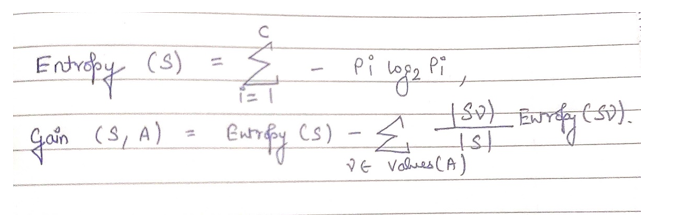 Entropy (S) = C∑i=1 - Pi log2 Pi,
Gain (S, A) = Entropy (S) - ∑v∈ Values(A) |Sv| / |S| Entropy (Sv).